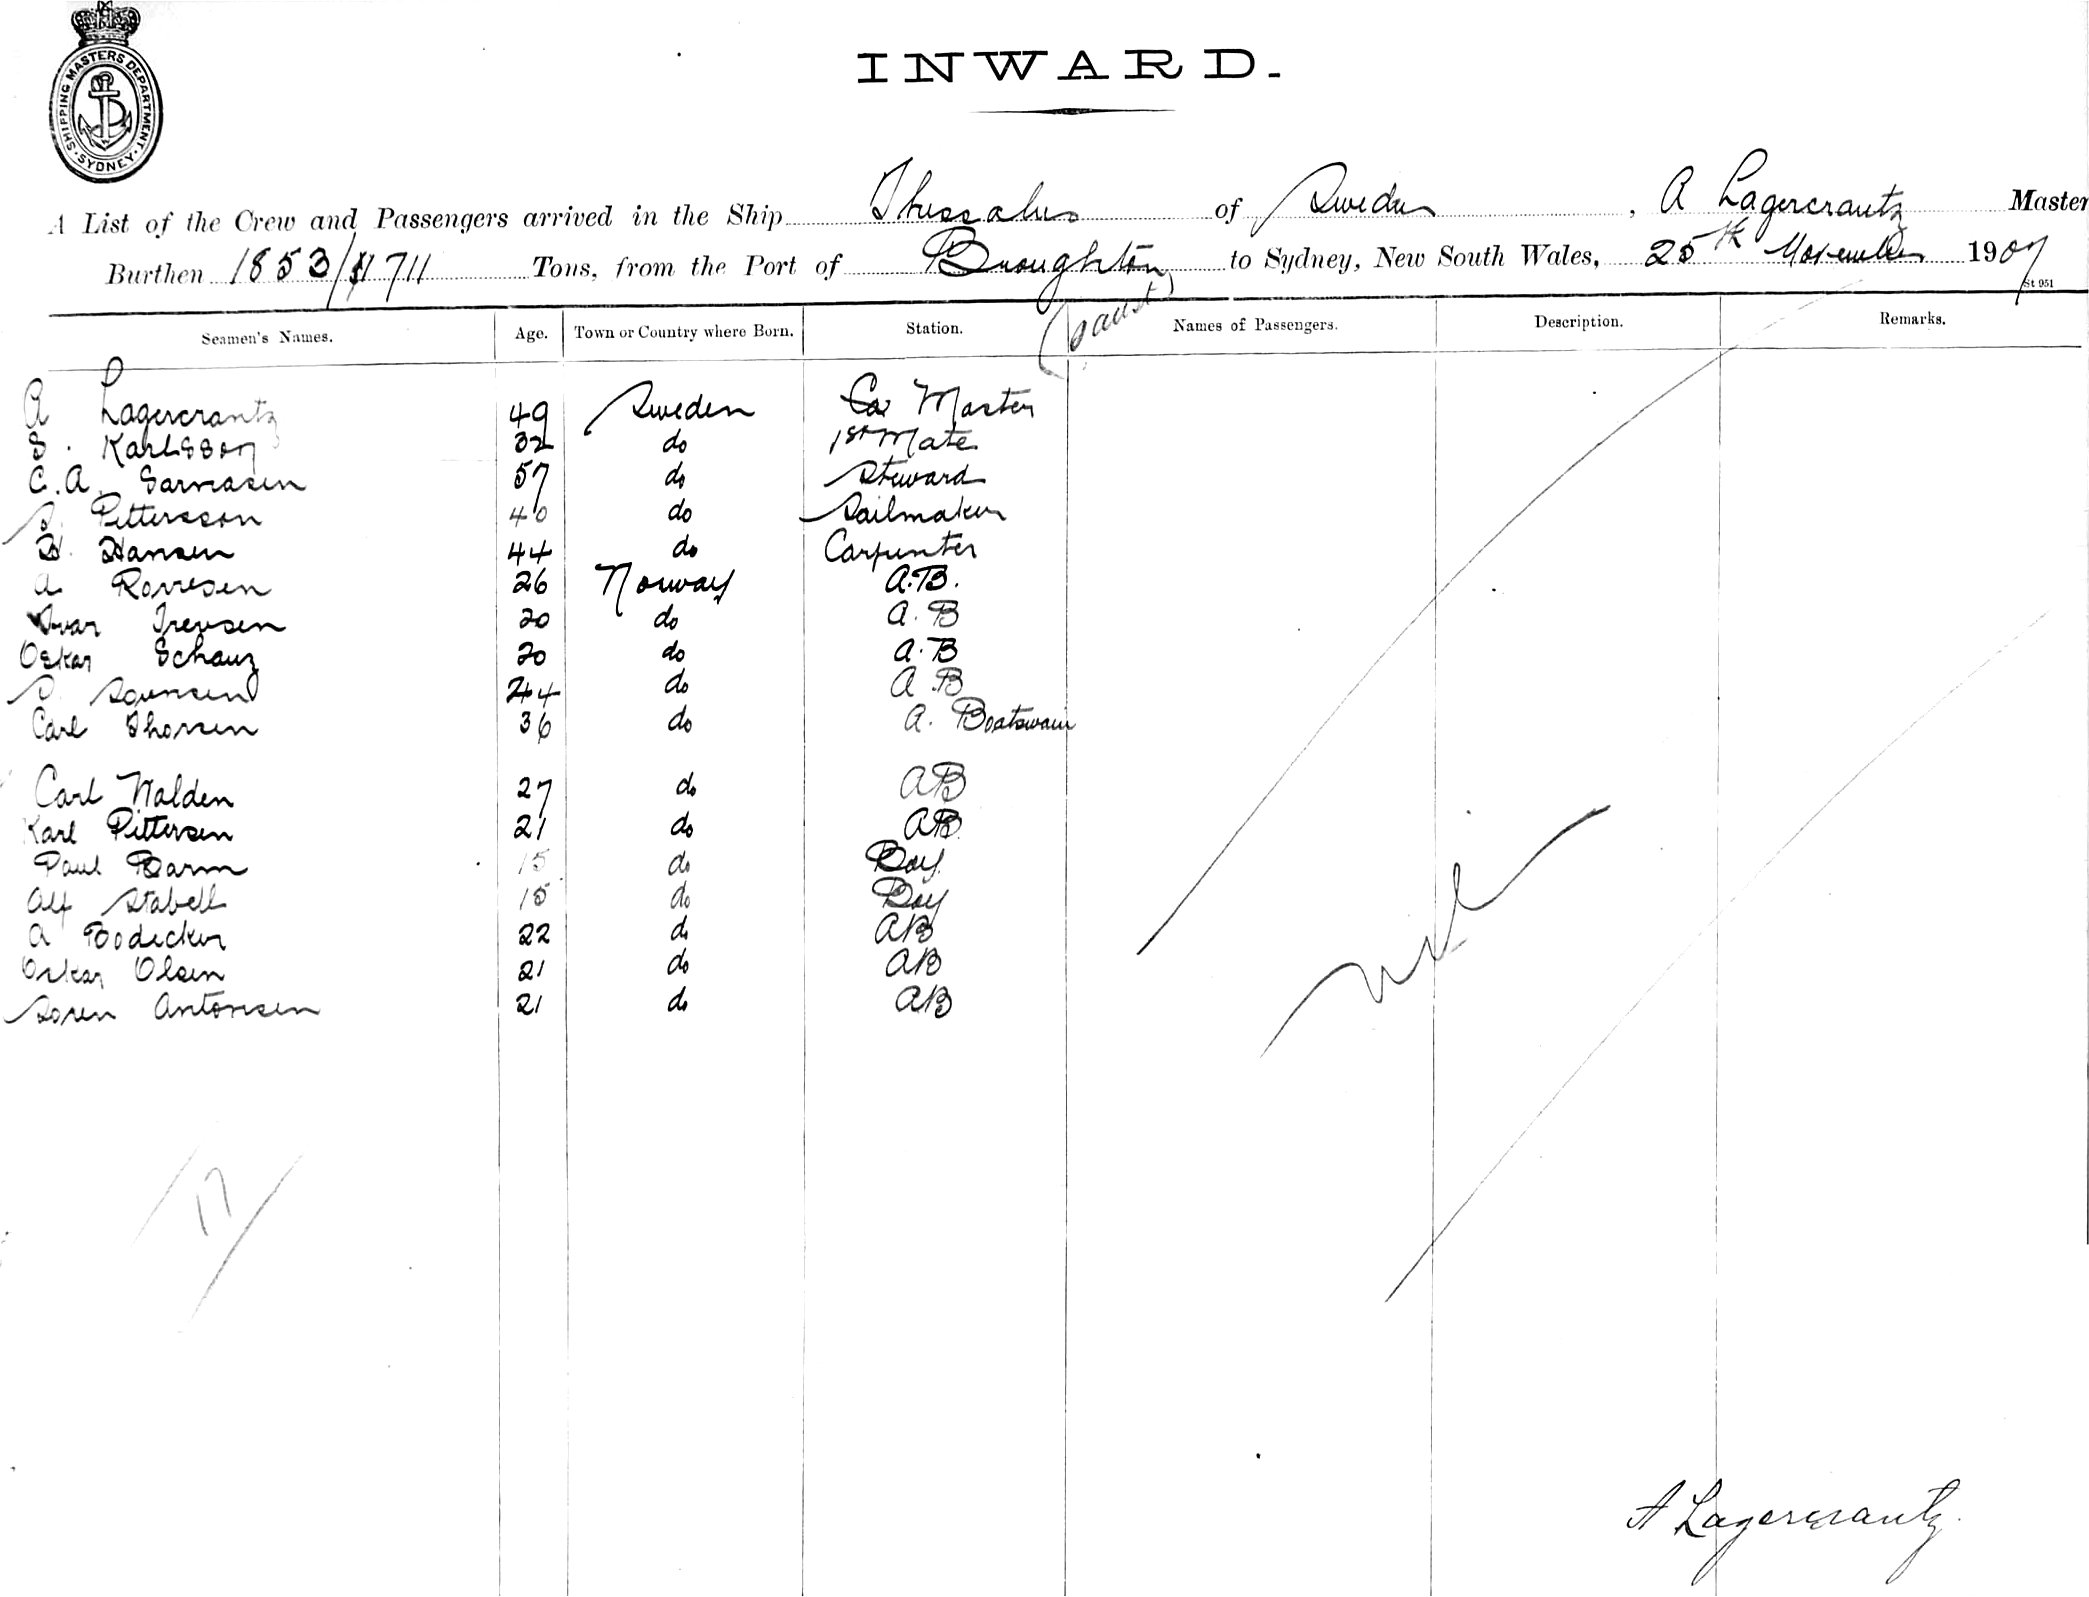 SHIPPING MASTERS DEPARTMENT · SYDNEY ·
INWARD.
A List of the Crew and Passengers arrived in the Ship Thessalus of Sweden, A Lagercrantz Master
Burthen 1853/1711 Tons, from the Port of Broughton to Sydney, New South Wales, 25th November 1907
St 951
Seamen's Names. Age. Town or Country where Born. Station. Names of Passengers. Description. Remarks.
A Lagercrantz 49 Sweden Master
S. Karlsson 32 do 1st Mate
C. A. 57 do Steward
S. Pettersson 40 do Sailmaker
H. Hansen 44 do Carpenter
A. 26 Norway A.B.
Ivar 20 do A. B
Oskar Schauz 20 do A. B
S. Sorensen 24 do A B
Carl Thorsen 36 do A. Boatswain
Carl Walden 27 do AB
Karl Pettersen 21 do AB
Paul Barm 15 do Boy
Alf Stabell 15 do Boy
A Bodecker 22 do AB
Oskar Olsen 21 do AB
Soren Antonsen 21 do AB
Nil
17
A Lagercrantz